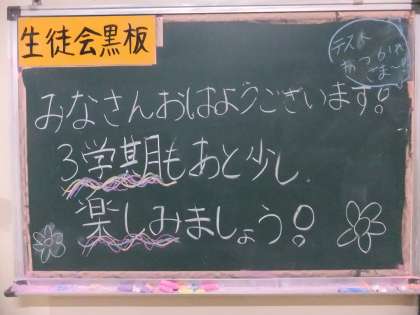 生徒会黒板
テスト
おつかれ
さま〜
みなさんおはようございます!
3学期もあと少し
楽しみましょう!